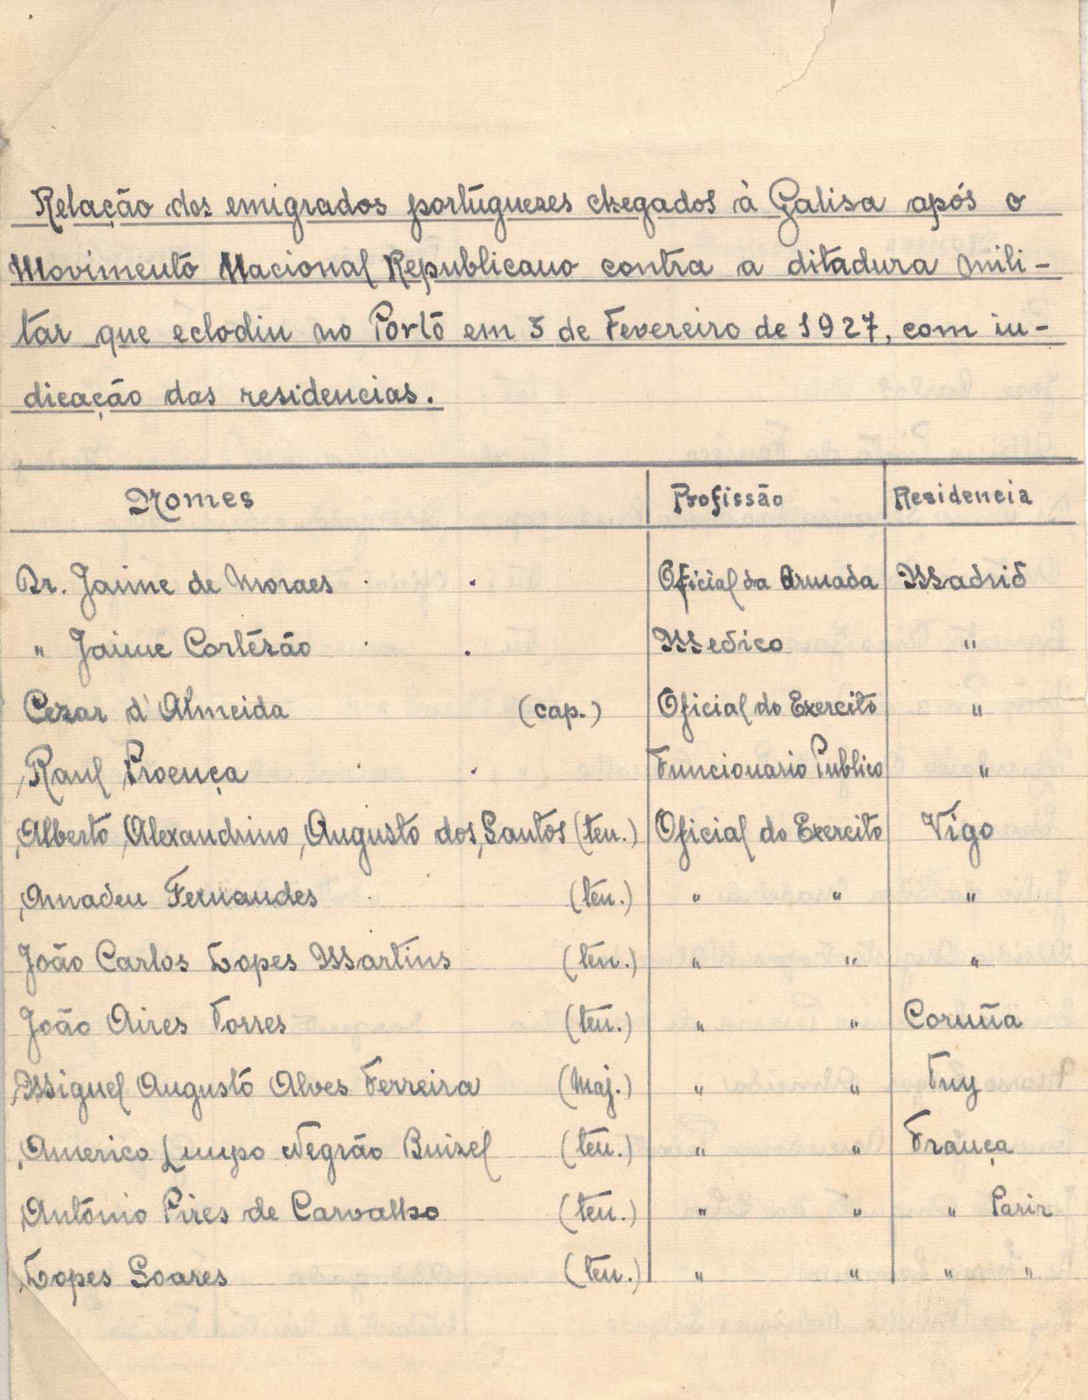 Relação dos emigrados portúguezes chegados à Galisa após o
Movimento Nacional Republicano contra a ditadura mili-
tar que eclodiu no Porto em 3 de Fevereiro de 1927, com in-
dicação das residencias.
Nomes Profissão Residencia
Dr. Jaime de Moraes Oficial da Armada Madrid
" Jaime Cortézão Medico "
Cezar d'Almeida (cap.) Oficial do Exercito "
Raul Proença Funcionario Publico "
Alberto Alexandrino Augusto dos Santos (ten.) Oficial do Exercito Vigo
Amadeu Fernandes (ten.) " " "
João Carlos Lopes Martins (ten.) " " "
João Aires Torres (ten.) " " Coruña
Miguel Augusto Alves Ferreira (Maj.) " " Tuy
Americo Negrão Buisel (ten.) " " França
António Pires de Carvalho (ten.) " " " Paris
Lopes Soares (ten.) " " " "